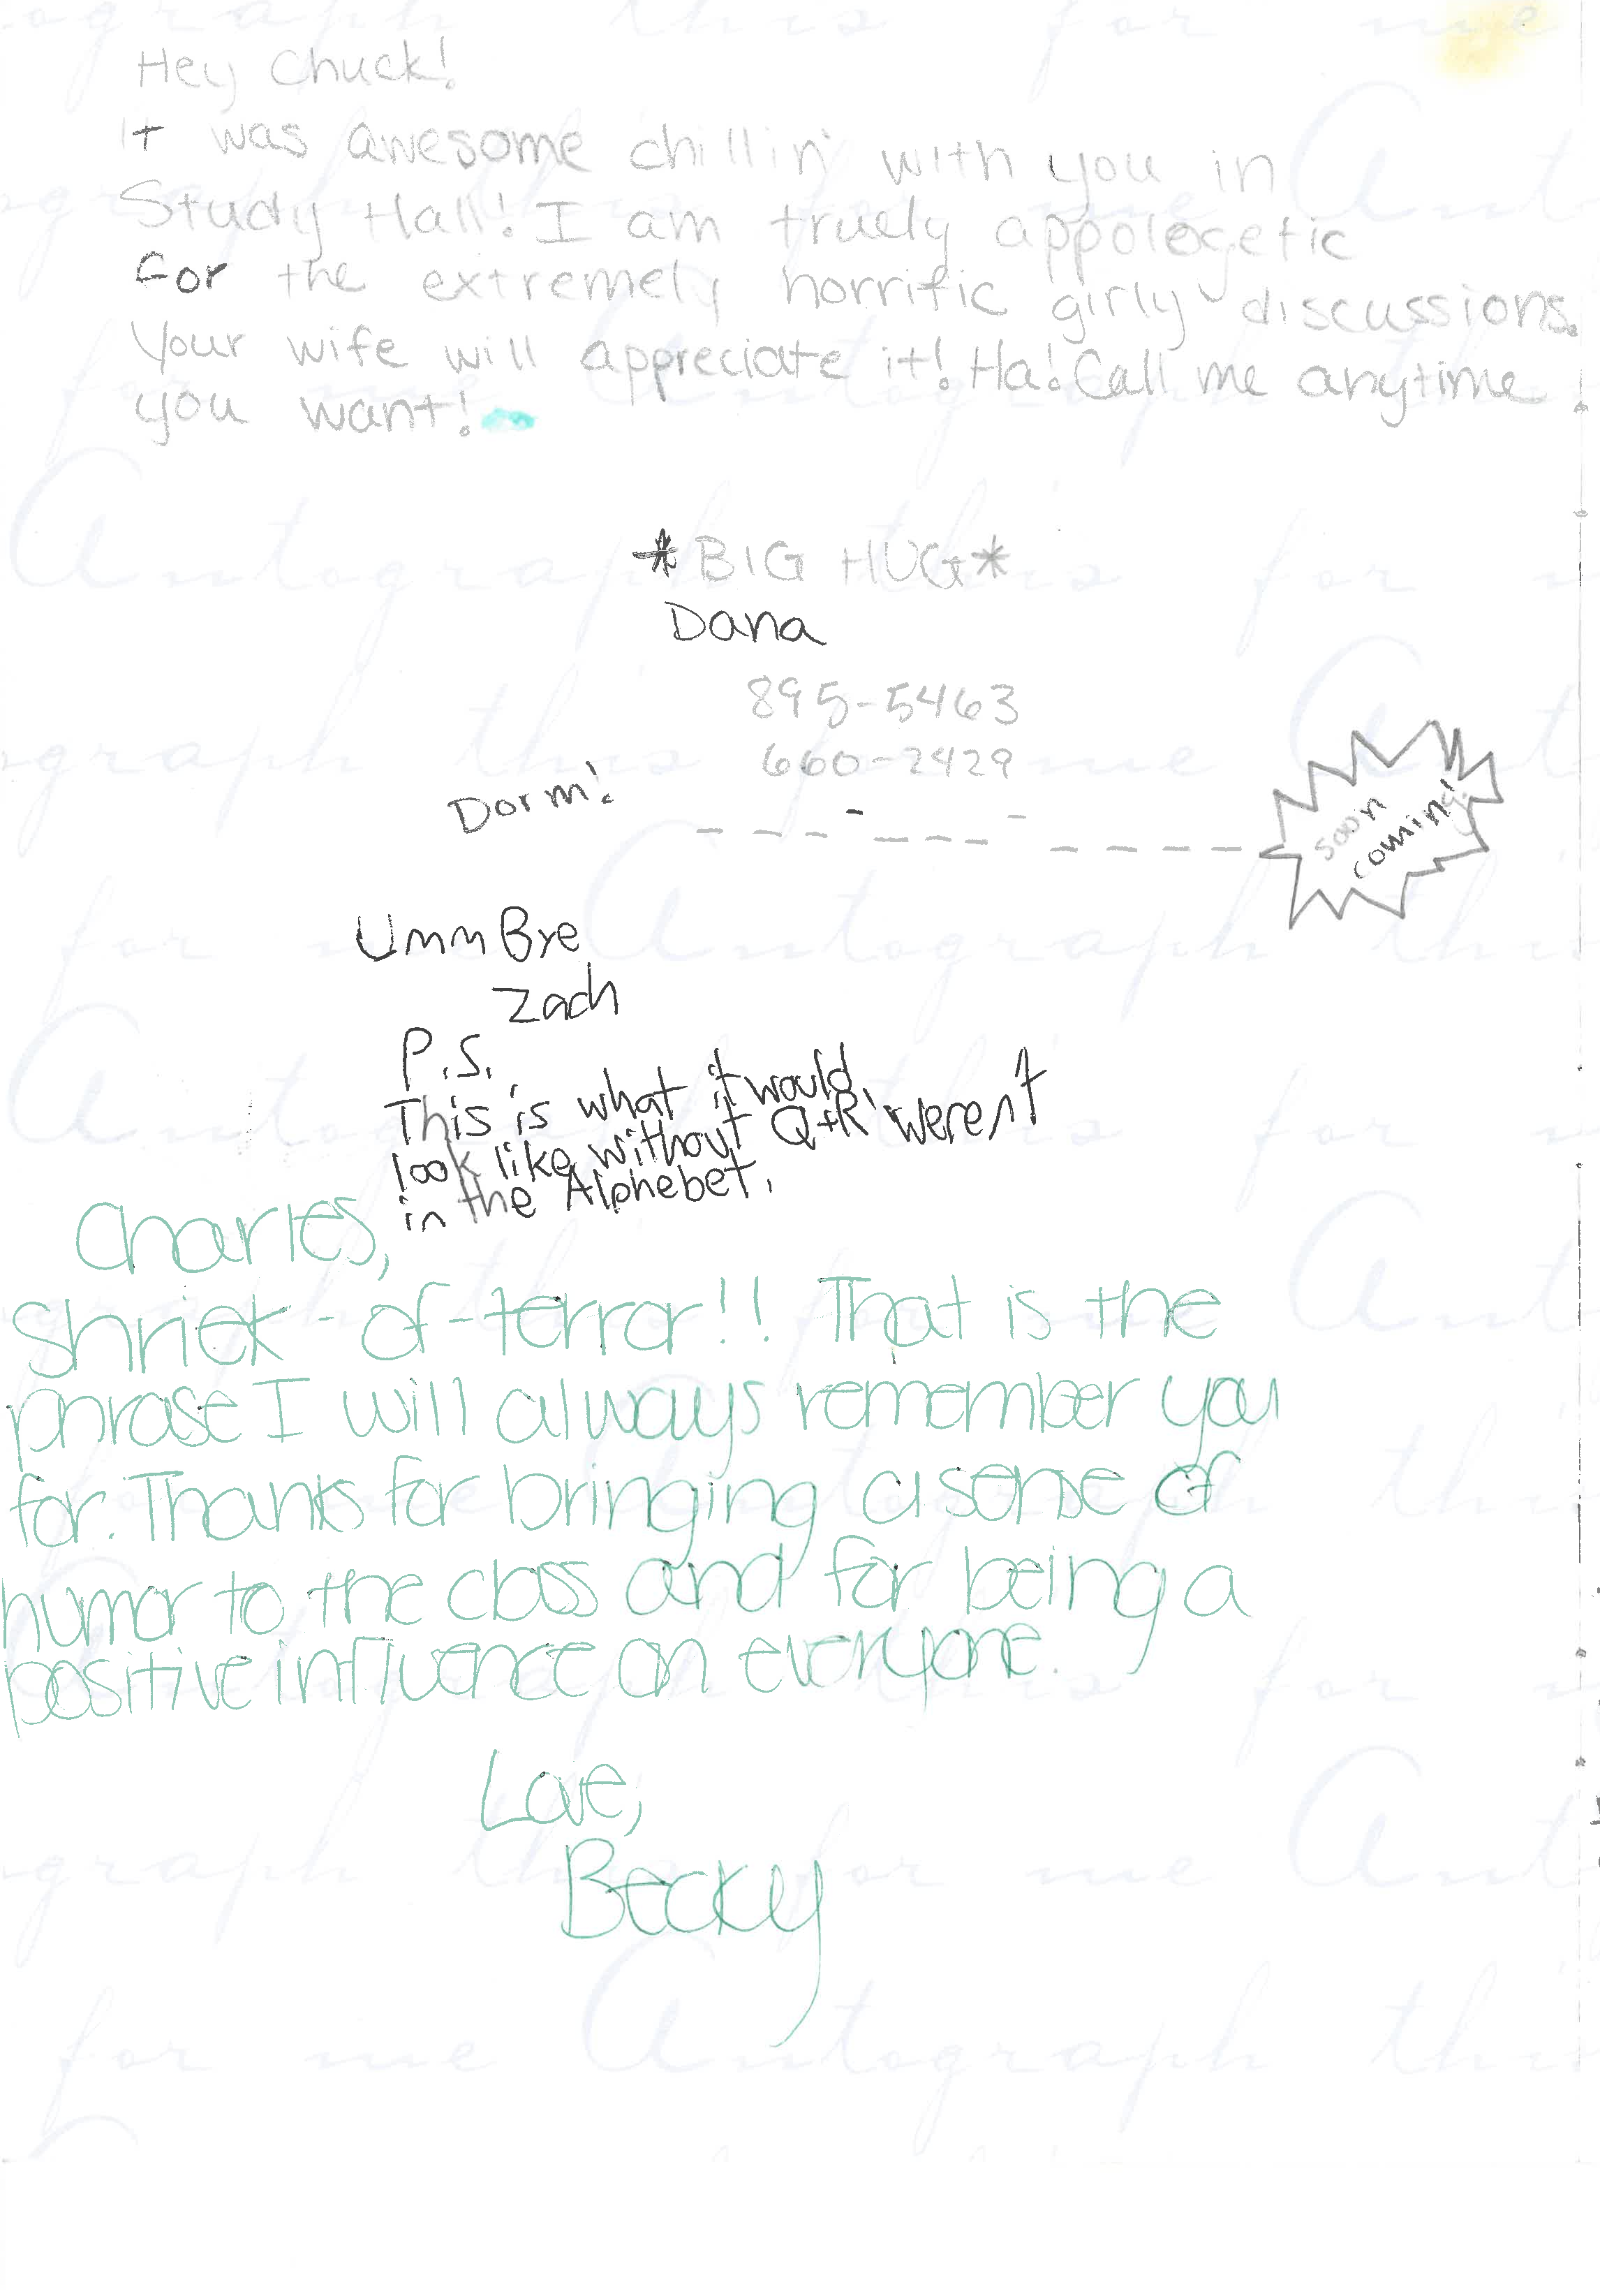 Hey Chuck!
It was awesome chillin' with you in
Study Hall! I am truely appologetic
for the extremely horrific girly discussions.
Your wife will appreciate it! Ha! Call me anytime
you want!
*BIG HUG*
Dana
895-5463
660-2429
Dorm!
_ _ _ - _ _ _ - _ _ _ _
soon
coming!
Umm Bye
Zach
P.S.
This is what it would
look like without Q+R weren't
in the Alphebet.
Charles,
Shriek-of-terror!! That is the
phrase I will always remember you
for. Thanks for bringing a sense of
humor to the class and for being a
positive influence on everyone.
Love,
Becky